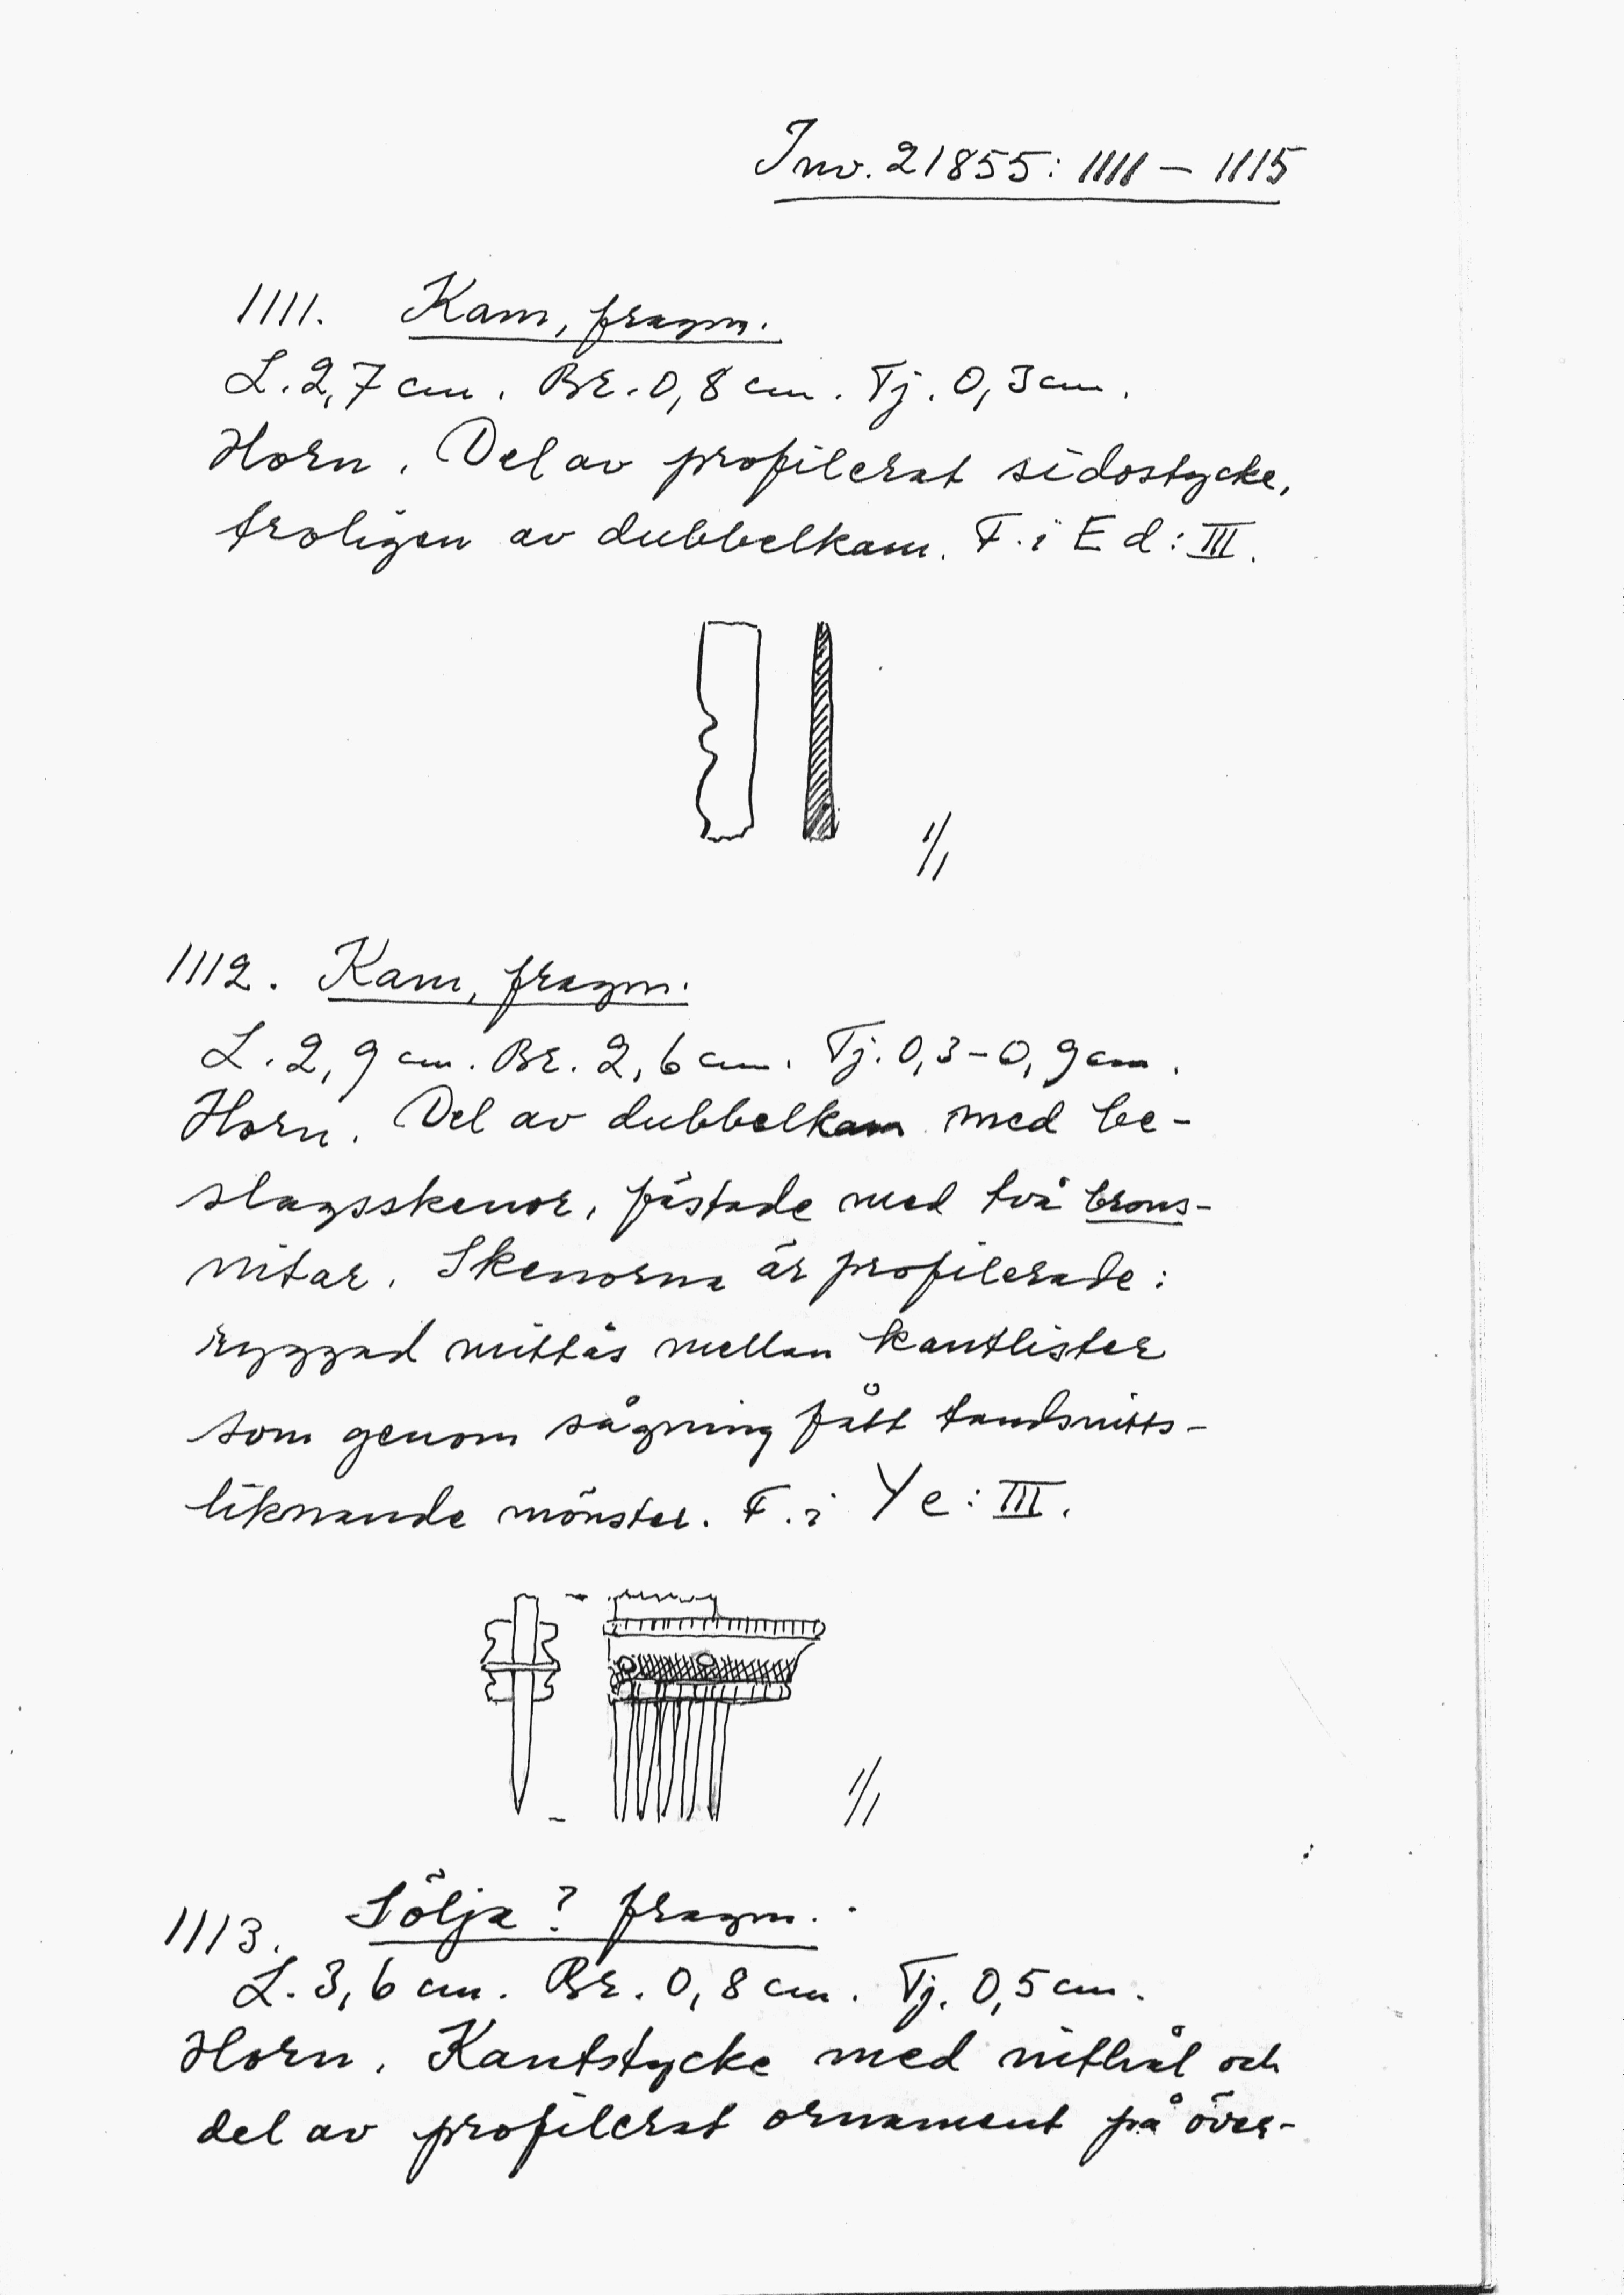 Inv. 21855: 1111 – 1115
1111. Kam, fragm.
L. 2,7 cm. Br. 0,8 cm. Tj. 0,3 cm.
Horn. Del av profilerat sidostycke,
troligen av dubbelkam. F. i Ed: III.
1/1
1112. Kam, fragm.
L. 2,9 cm. Br. 2,6 cm. Tj. 0,3-0,9 cm.
Horn. Del av dubbelkam med be-
slagsskenor, fästade med två brons-
nitar. Skenorna är profilerade:
ryggad mittås mellan kantlister
som genom sågning fått tandsnitts-
liknande mönster. F. i Ye: III.
1/1
1113. Sölja? fragm.
L. 3,6 cm. Br. 0,8 cm. Tj. 0,5 cm.
Horn. Kantstycke med nithål och
del av profilerat ornament på över-